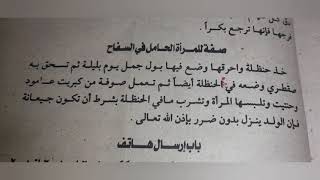 فرجها فإنها ترجع بكراً
صفة للمرأة الحامل في السفاح
خذ حنظلة واحرقها وضع فيها بول جمل يوم بليلة ثم تسحق به
صقطري وضعه في الحنظلة أيضاً ثم تعمل صوفة من كبريت عامود
وحتيت وتلبسها المرأة وتشرب مافي الحنظلة بشرط أن تكون جيعانة
فإن الولد ينزل بدون ضرر بإذن الله تعالى .
باب إرسال هاتف